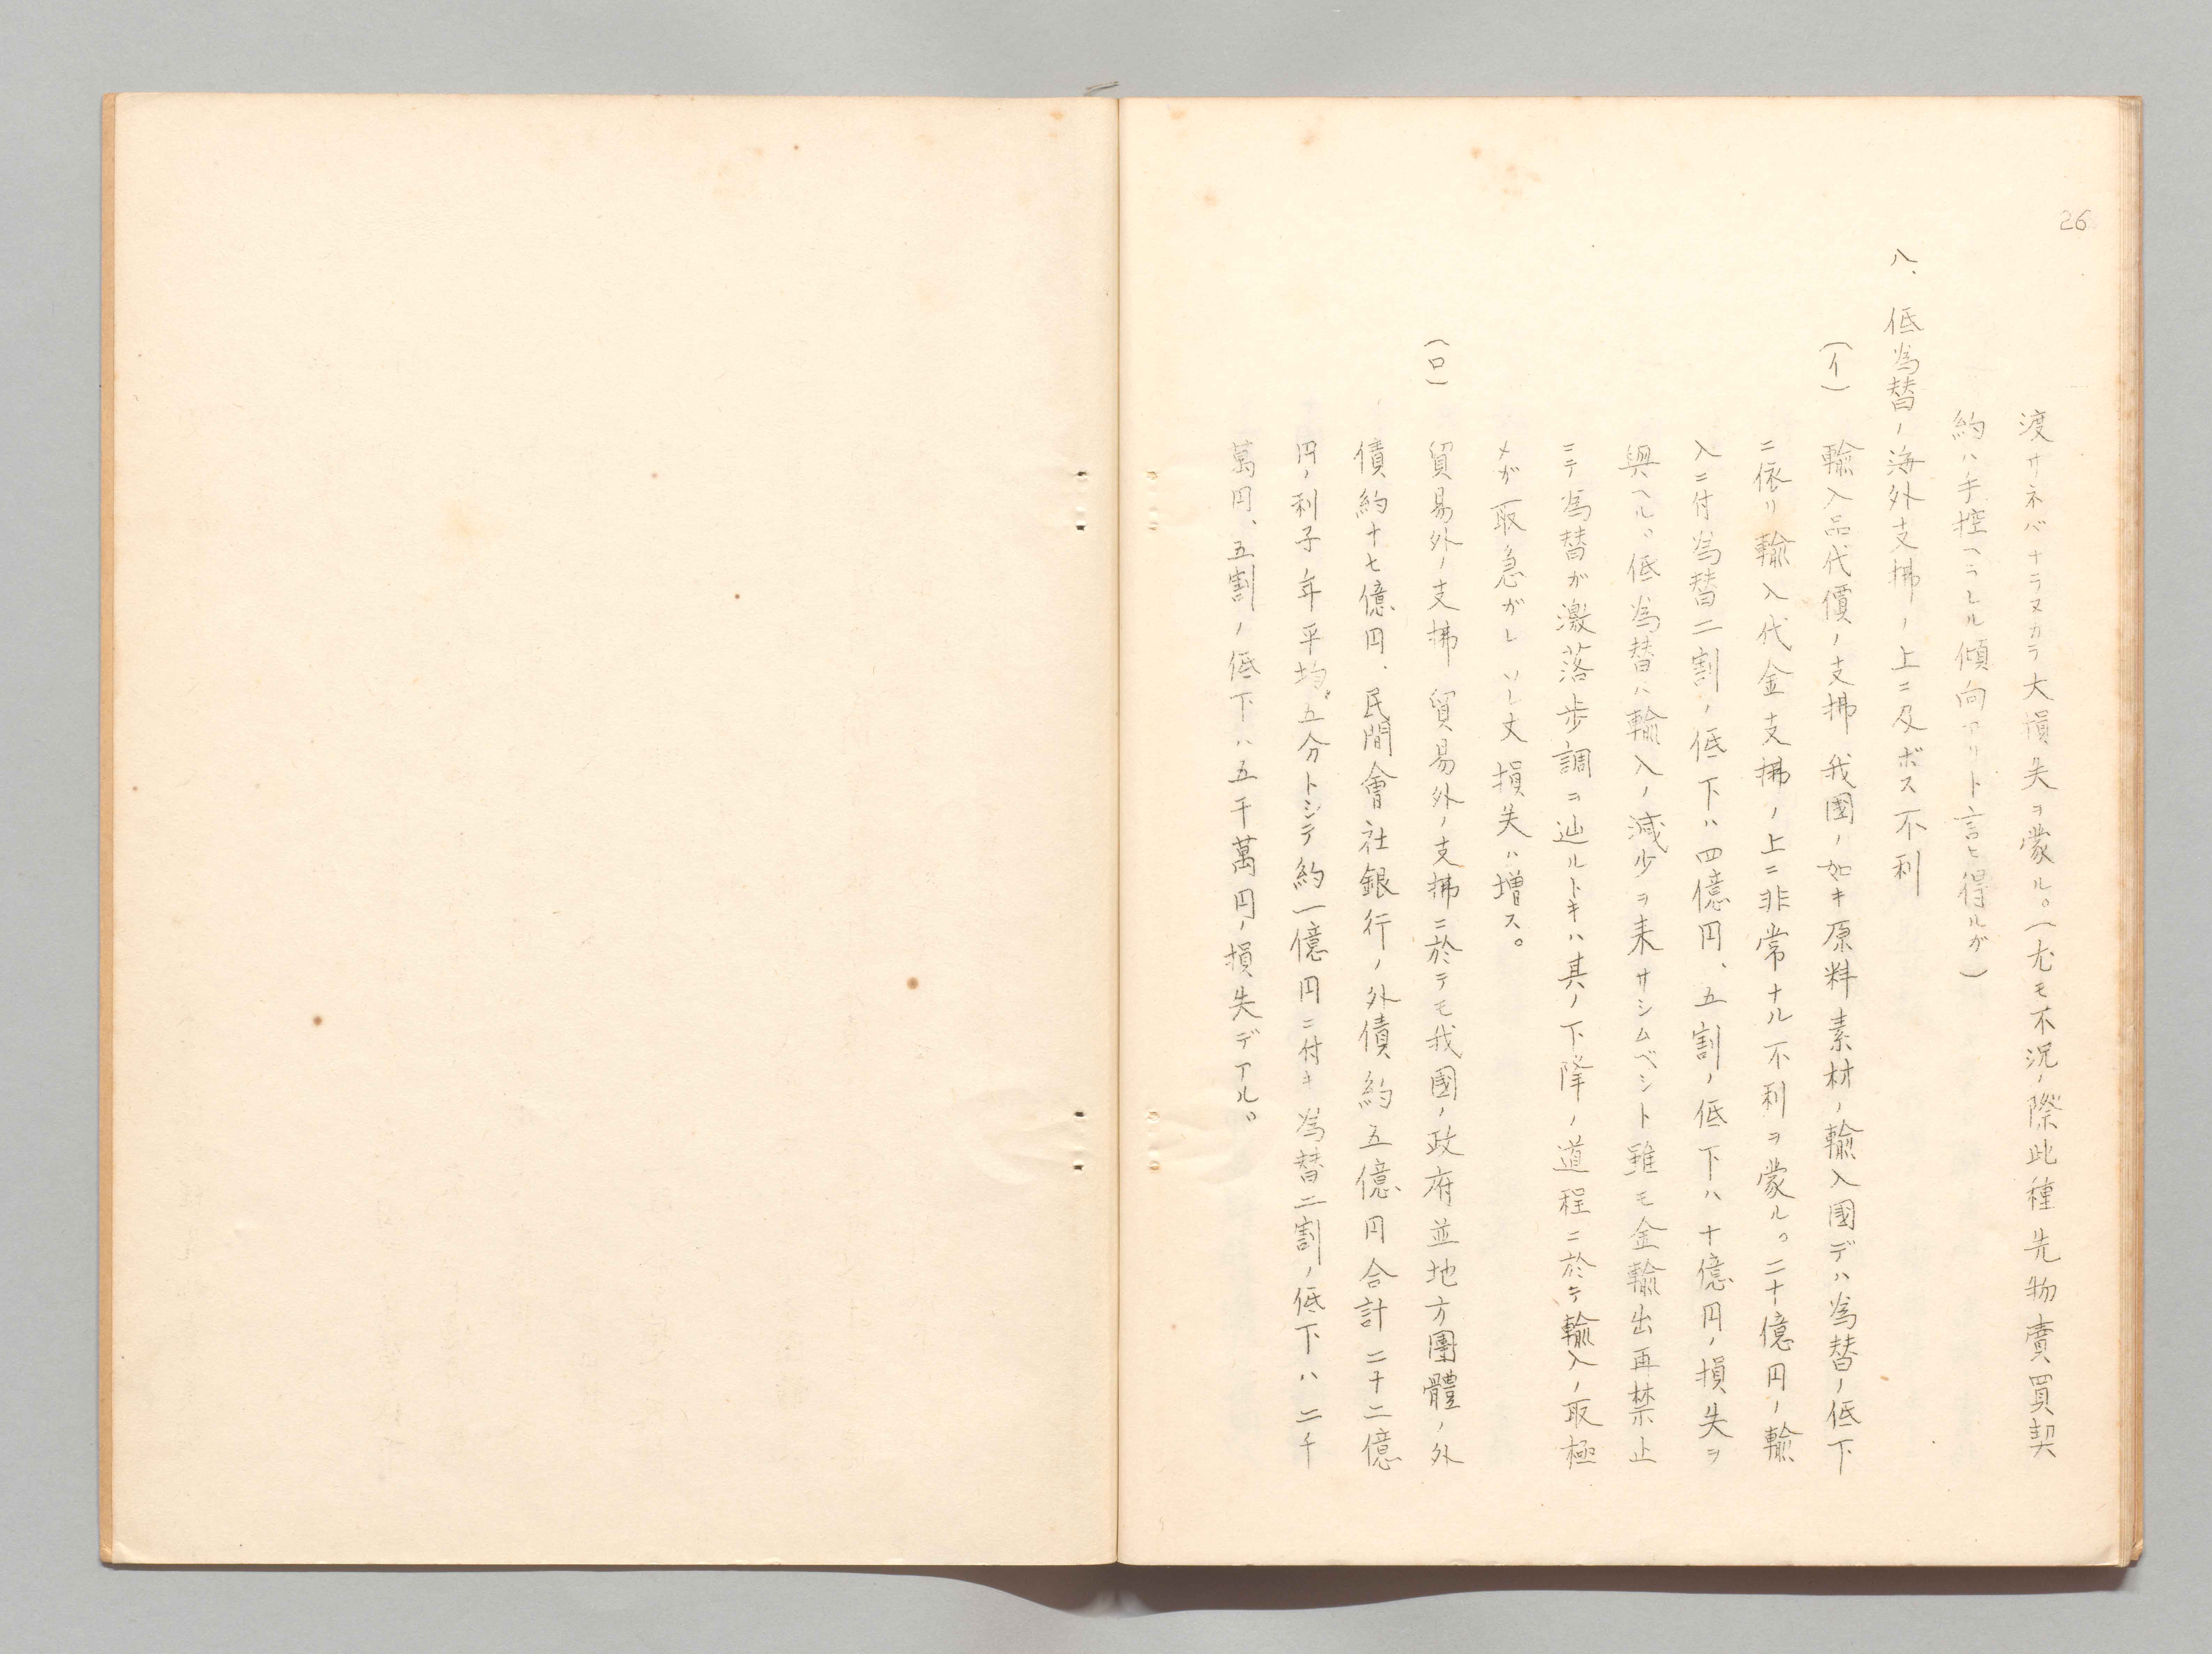 26
渡サネバナラヌカラ大損失ヲ蒙ル。(尤モ不況ノ際此種先物賣買契
約ハ手控ヘラレル傾向アリト言ヒ得ルガ)
八、低為替ノ海外支拂ノ上ニ及ボス不利
(イ) 輸入品代價ノ支拂 我國ノ如キ原料素材ノ輸入國デハ為替ノ低下
ニ依リ輸入代金支拂ノ上ニ非常ナル不利ヲ蒙ル。二十億円ノ輸
入ニ付為替二割ノ低下ハ四億円、五割ノ低下ハ十億円ノ損失ヲ
與ヘル。低為替ハ輸入ノ減少ヲ来サシムベシト雖モ金輸出再禁止
ニテ為替が激落歩調ヲ辿ルトキハ其ノ下降ノ道程ニ於テ輸入ノ取極
メガ取急ガレソレ丈損失ハ増ス。
(ロ) 貿易外ノ支拂 貿易外ノ支拂ニ於テモ我國ノ政府並地方團體ノ外
債約十七億円、民間會社銀行ノ外債約五億円合計二十二億
円ノ利子年平均五分トシテ約一億円ニ付キ為替二割ノ低下ハ二千
萬円、五割ノ低下ハ五千萬円ノ損失デアル。